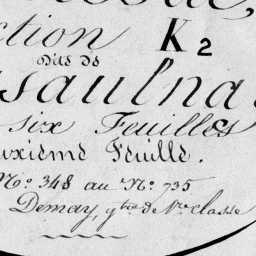 ction K2
dite de
Saulna
six Feuilles
uxième Feuille.
N° 348 au N° 735
Demay, g
de classe